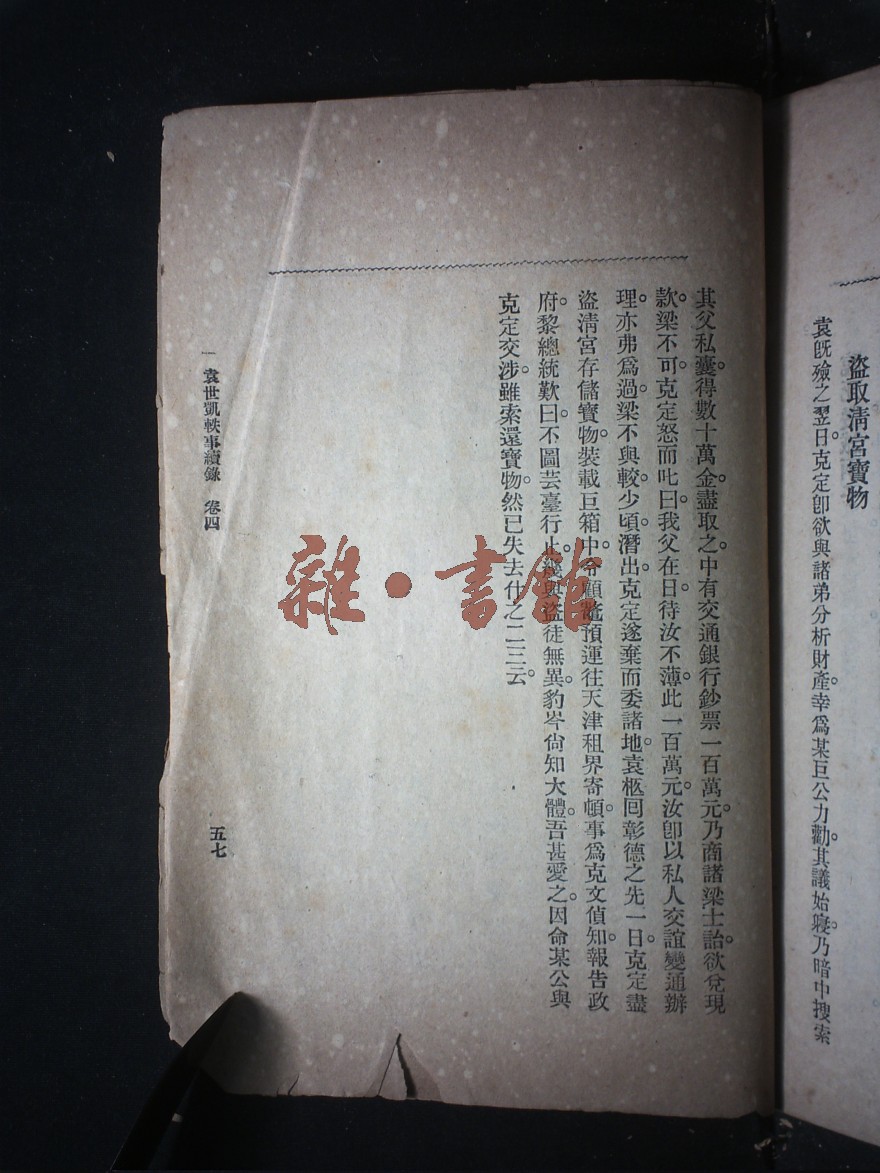 盜取清宮寶物
袁既殮之翌日。克定卽欲與諸弟分析財產。幸爲某巨公力勸。其議始寢。乃暗中搜索
其父私囊。得數十萬金。盡取之。中有交通銀行鈔票一百萬元。乃商諸梁士詒。欲兌現
款。梁不可。克定怒而叱曰。我父在日。待汝不薄。此一百萬元。汝卽以私人交誼變通辦
理。亦弗爲過。梁不與較。少頃潛出。克定遂棄而委諸地。袁柩回彰德之先一日。克定盡
盜清宮存儲寶物。裝載巨箱中。令顧鼇預運往天津租界寄頓。事爲克文偵知。報告政
府。黎總統歎曰。不圖芸臺行止。幾與盜徒無異。豹岑尙知大體。吾甚愛之。因命某公與
克定交涉。雖索還寶物。然已失去什之二三云。
袁世凱軼事續錄 卷四
五七
雜·書館